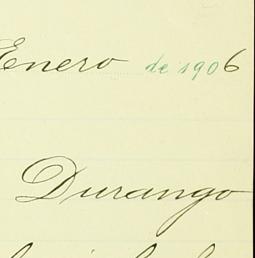 Enero de 1906
Durango